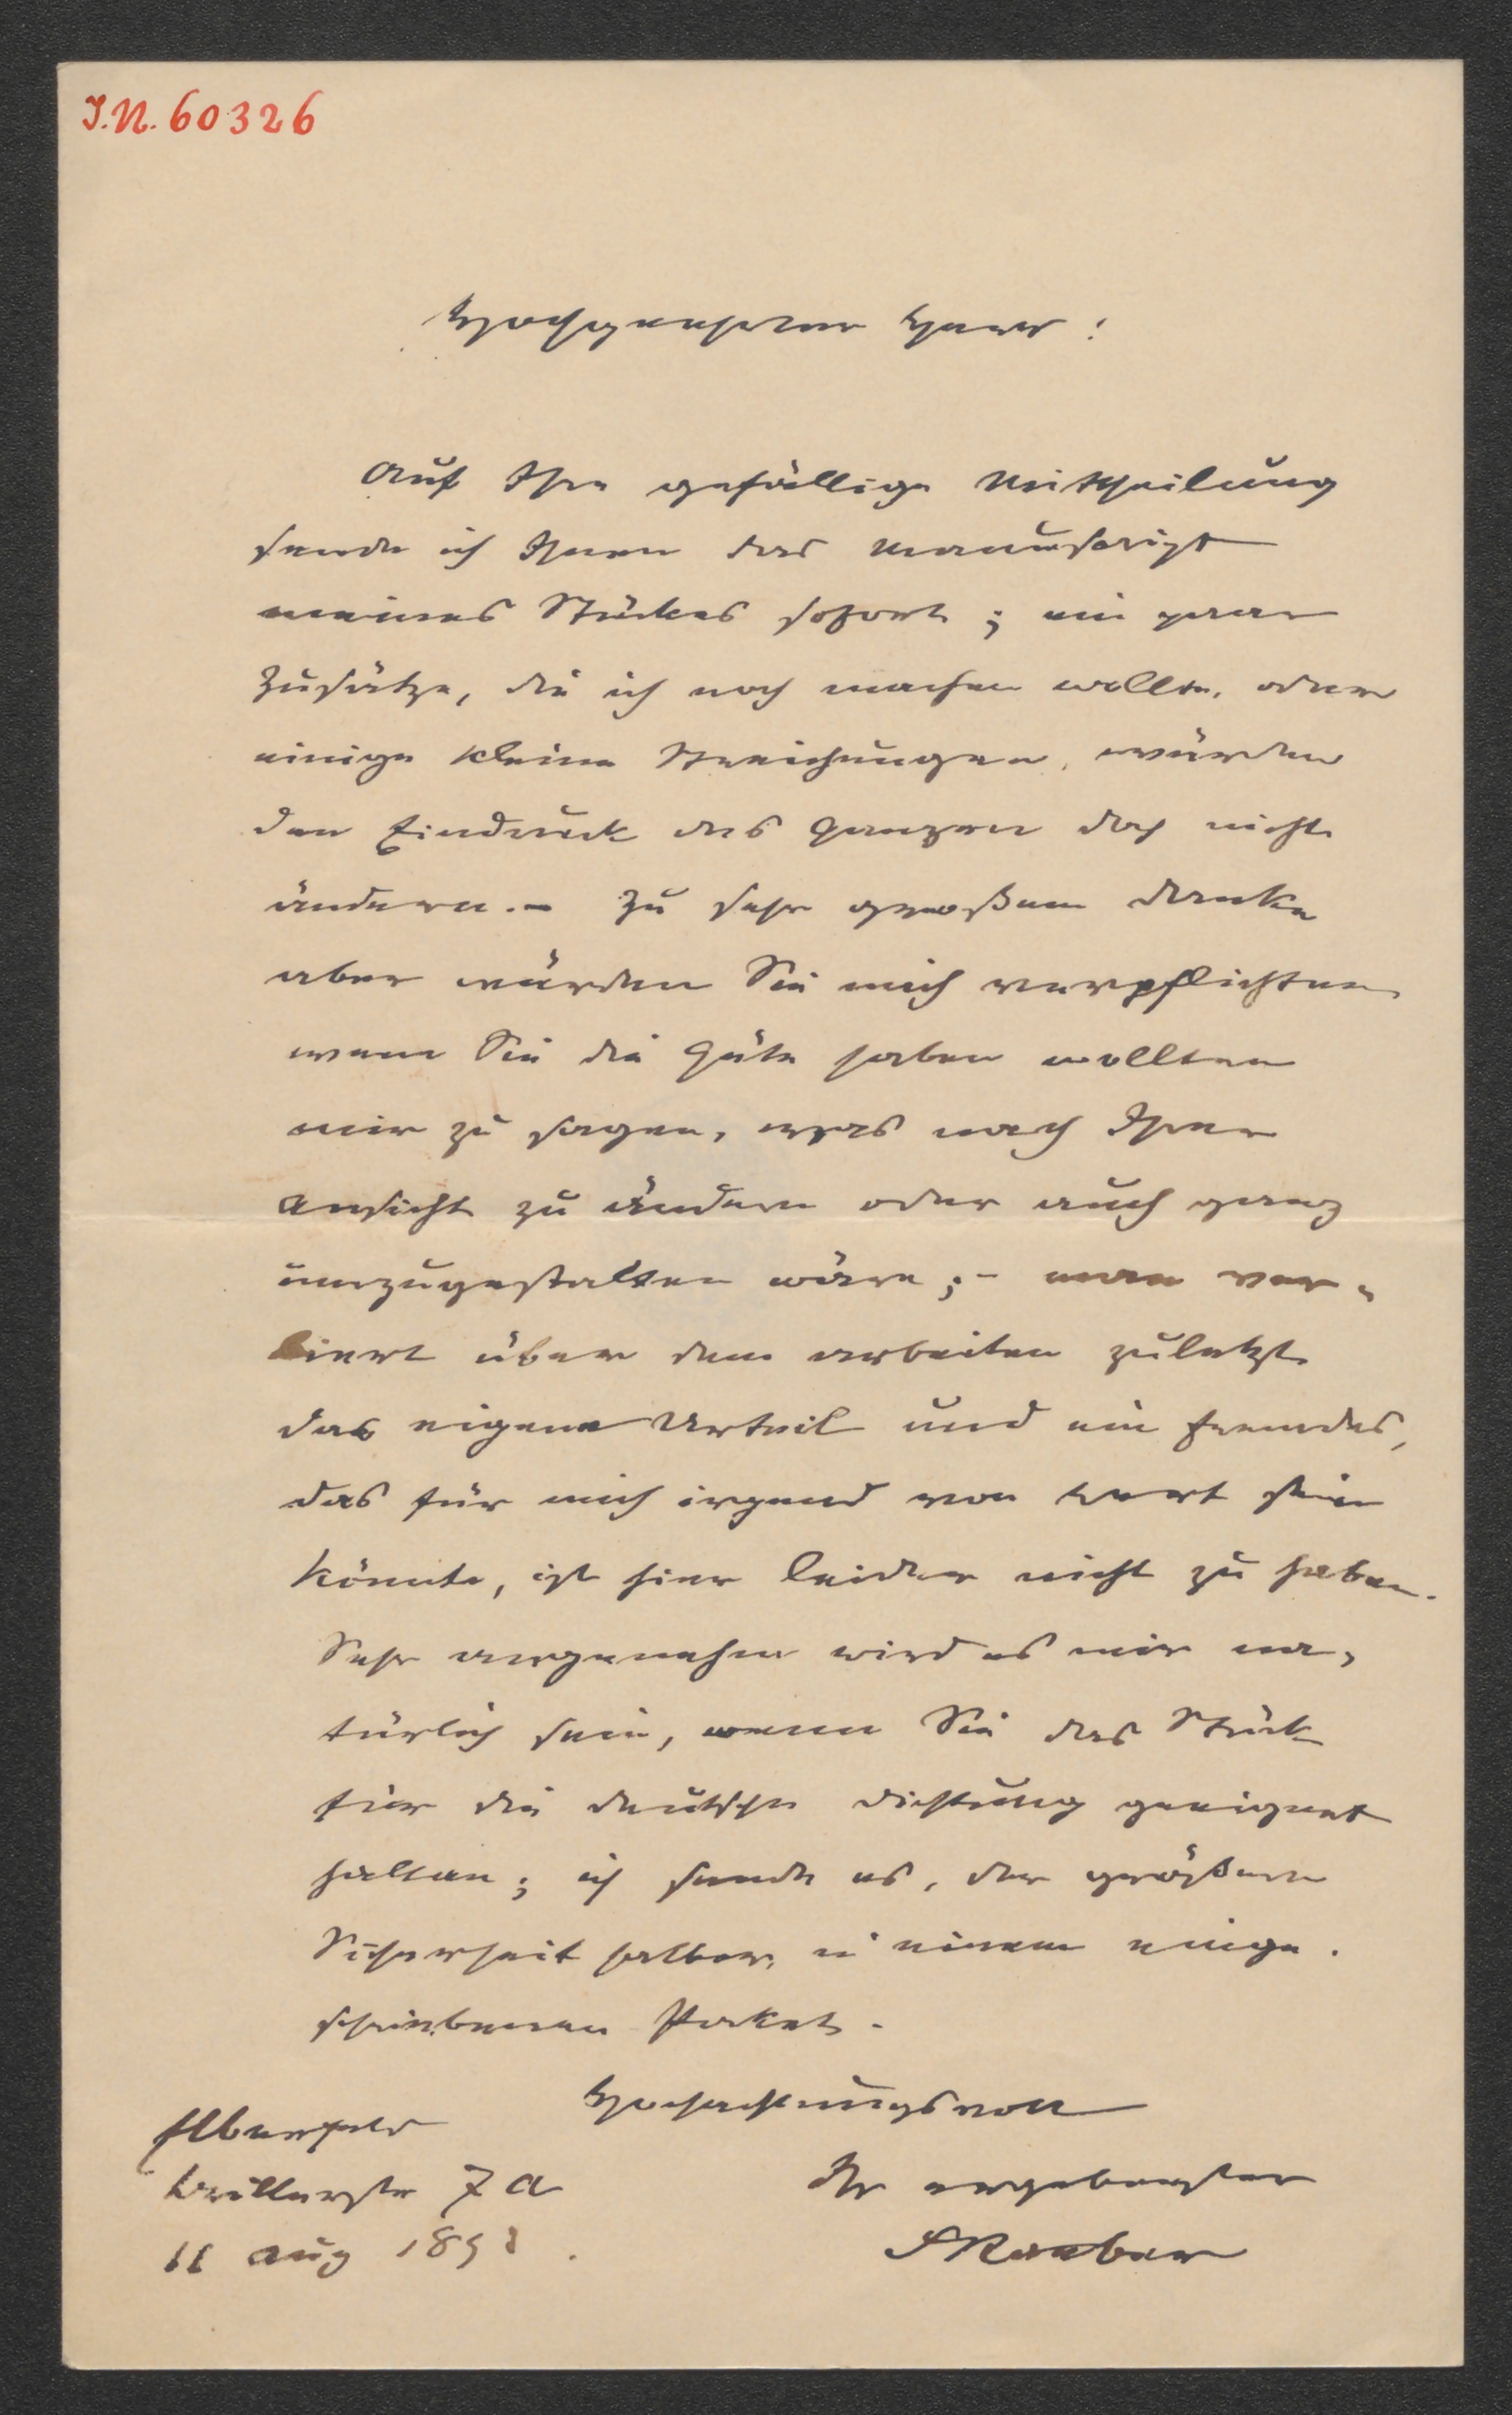 J.N. 60326
Hochgeehrter Herr!
Auf Ihre gefällige Mittheilung
sende ich Ihnen das Manuskript
meines Stückes sofort; ein paar
Zusätze, die ich noch machen wollte, oder
einige kleine Streichungen, würden
den Eindruck des Ganzen doch nicht
ändern. – Zu sehr großem Danke
aber würden Sie mich verpflichten,
wenn Sie die Güte haben wollten
mir zu sagen, was nach Ihrer
Ansicht zu ändern oder auch ganz
umzugestalten wäre; – man ver-
liert über dem arbeiten zuletzt
das eigene Urteil und ein fremdes,
das für mich irgend von Wert sein
könnte, ist hier leider nicht zu haben.
Sehr angenehm wird es mir na-
türlich sein, wenn Sie das Stück
für die deutsche Dichtung geeignet
halten; ich sende es, der größern
Sicherheit halber, in einem einge-
schriebenen Packet.
Hochachtungsvoll
Elberfeld
Ihr ergebenster
7a
11 Aug